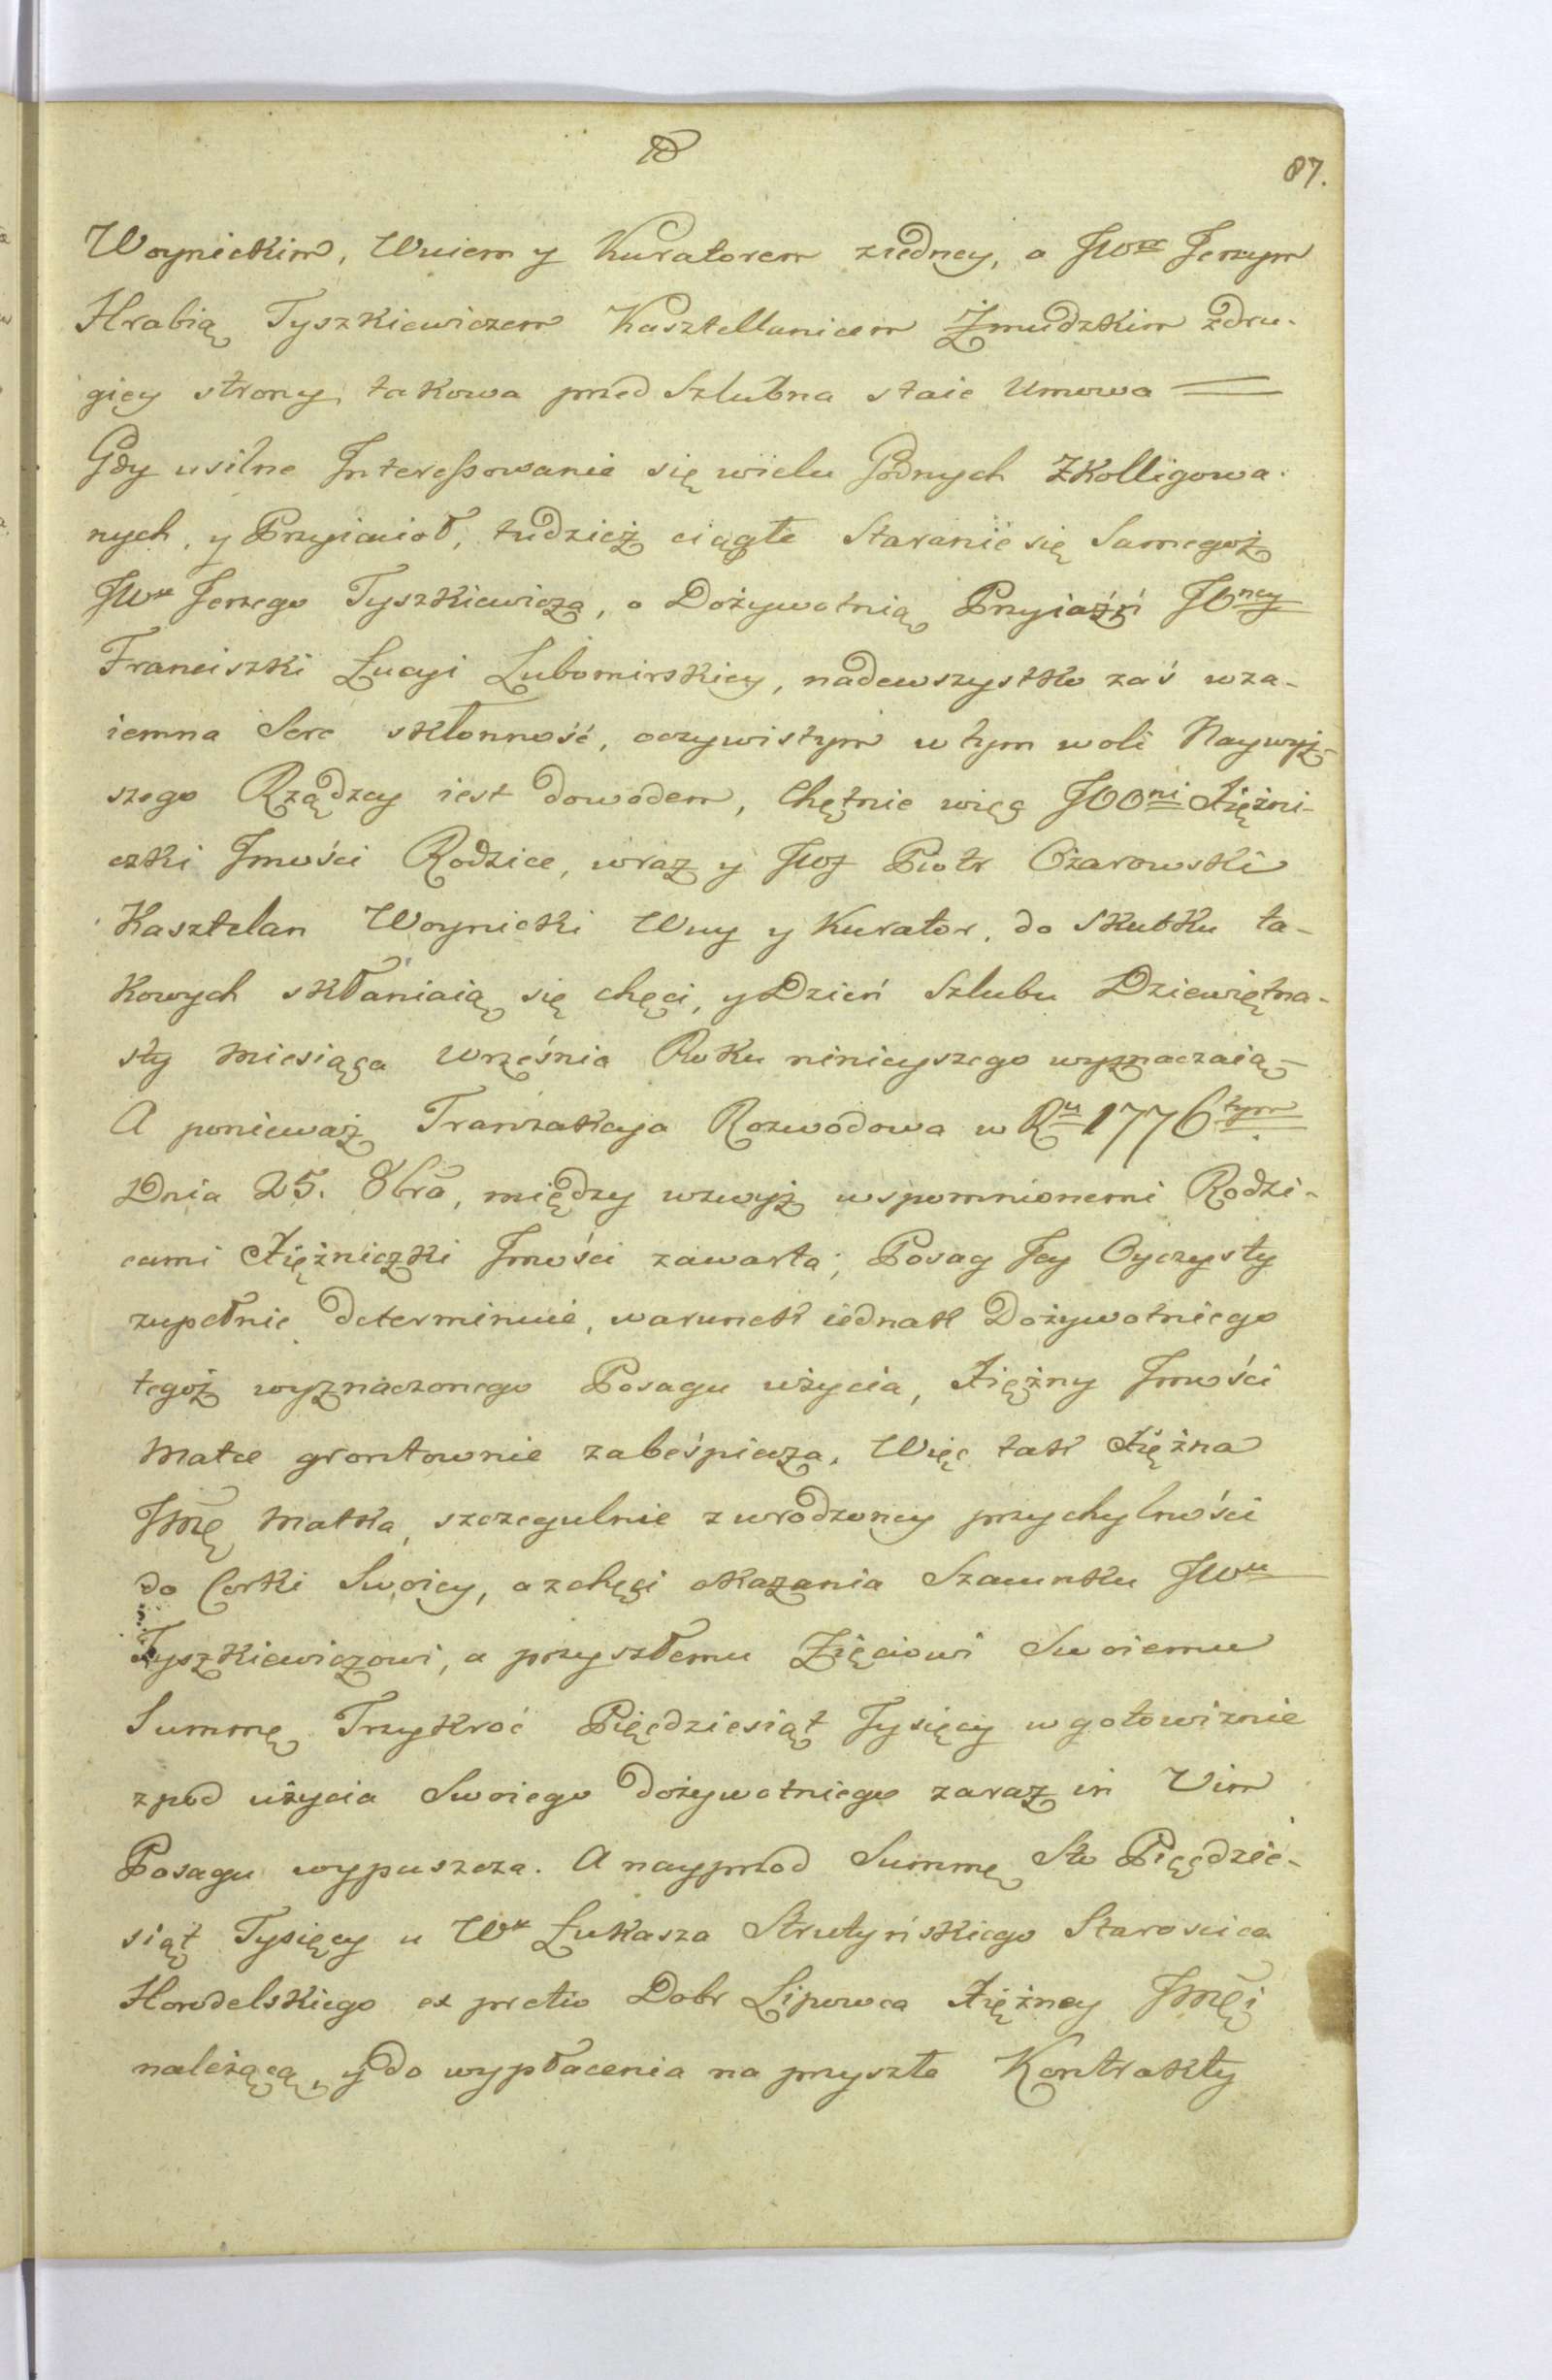 87.
Woynickim, Wuiem y Kuratorem ziedney, a JWm Jerzym
Hrabią Tyszkiewiczem Kasztellanicem Żmudzkim zdru-
giey strony, takowa przed Szlubna staie Umowa =
Gdy usilne Interessowanie się wielu Godnych Zkolligowa-
nych, y Przyiacioł, tudzież ciągłe Staranie się Samegoż
JWo Jerzego Tyszkiewicza, o Dożywotnią Przyiaźń JOney
Franciszki Łucyi Lubomirskiey, nadewszystko zaś wza-
iemna Serc skłonność, oczywistym w tym woli Naywyż-
szego Rządzcy iest dowodem, Chętnie więc JOOni Xiężni-
czki Jmości Rodzice, wraz y JWJ Piotr Ożarowski
Kasztelan Woynicki Wuy y Kurator, do Skutku ta-
kowych skłaniaią się chęci, y Dzień Szlubu Dziewiętna-
sty Miesiąca Wrześnie Roku ninieyszego wyznaczaią –
A ponieważ Tranzakcya Rozwodowa w Ru 1776tym
Dnia 25. 8bra, między wzwyż wspomnionemi Rodzi-
cami Xiężniczki Jmości zawarta; Posag Jey Oyczysty
zupełnie determinuie, warunek iednak Dożywotniego
tegoż wyznaczonego Posagu użycia, Xiężny Jmości
Matce grontownie zabeśpiecza, Więc tak Xiężna
Jmę Matka, szczegulnie z wrodzoney przychylności
do Corki Swoiey, a z chęci okazania Szacunku JWu
Tyszkiewiczowi, a przyszłemu Zięciowi Swoiemu
Summę Trzykroć Pięćdziesiąt Tysięcy w gotowiznie
z pod użycia Swoiego dożywotniego zaraz in Vim
Posagu wypuszcza. A nayprzod Summę Sto Pięćdzie-
siąt Tysięcy u Wo Łukasza Strutyńskiego Starościca
Horodelskiego ex pretio Dobr Lipowca Xiężney Jmęi
należącą, y do wypłacenia na przyszłe Kontrakty